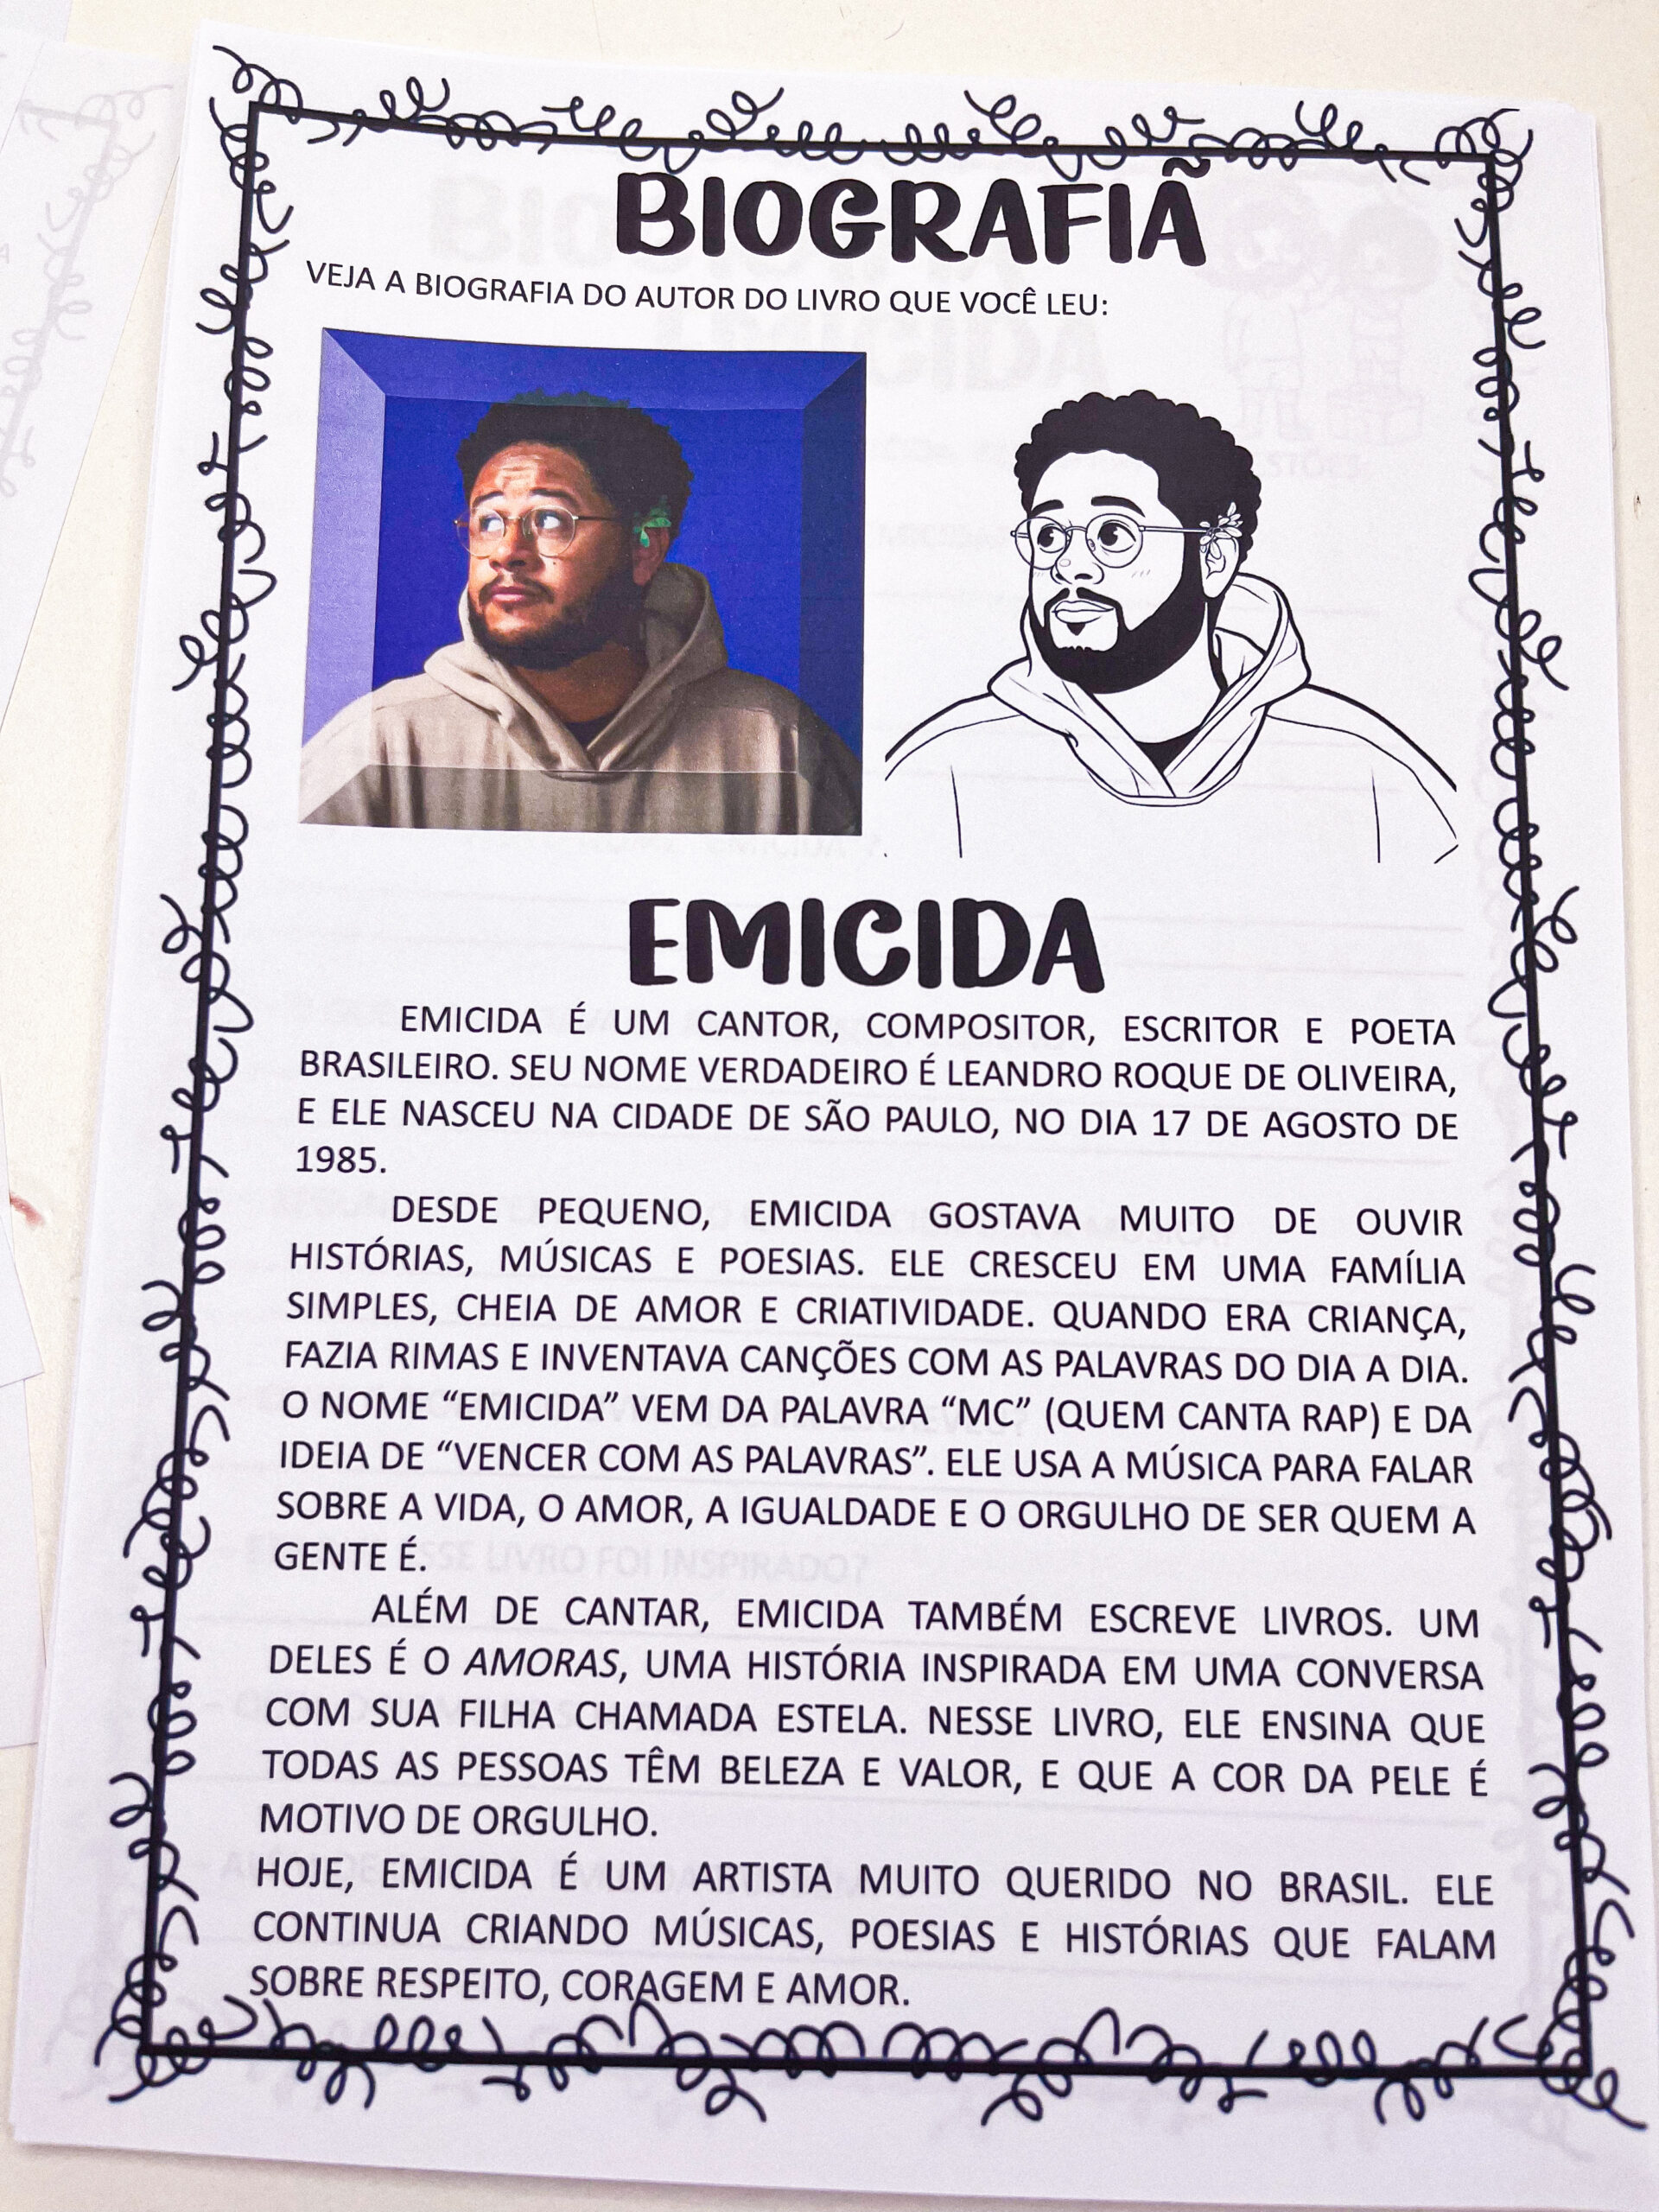 BIOGRAFIÃ
VEJA A BIOGRAFIA DO AUTOR DO LIVRO QUE VOCÊ LEU:
EMICIDA
EMICIDA É UM CANTOR, COMPOSITOR, ESCRITOR E POETA
BRASILEIRO. SEU NOME VERDADEIRO É LEANDRO ROQUE DE OLIVEIRA,
E ELE NASCEU NA CIDADE DE SÃO PAULO, NO DIA 17 DE AGOSTO DE
1985.
DESDE PEQUENO, EMICIDA GOSTAVA MUITO DE OUVIR
HISTÓRIAS, MÚSICAS E POESIAS. ELE CRESCEU EM UMA FAMÍLIA
SIMPLES, CHEIA DE AMOR E CRIATIVIDADE. QUANDO ERA CRIANÇA,
FAZIA RIMAS E INVENTAVA CANÇÕES COM AS PALAVRAS DO DIA A DIA.
O NOME “EMICIDA” VEM DA PALAVRA “MC” (QUEM CANTA RAP) E DA
IDEIA DE “VENCER COM AS PALAVRAS”. ELE USA A MÚSICA PARA FALAR
SOBRE A VIDA, O AMOR, A IGUALDADE E O ORGULHO DE SER QUEM A
GENTE É.
ALÉM DE CANTAR, EMICIDA TAMBÉM ESCREVE LIVROS. UM
DELES É O AMORAS, UMA HISTÓRIA INSPIRADA EM UMA CONVERSA
COM SUA FILHA CHAMADA ESTELA. NESSE LIVRO, ELE ENSINA QUE
TODAS AS PESSOAS TÊM BELEZA E VALOR, E QUE A COR DA PELE É
MOTIVO DE ORGULHO.
HOJE, EMICIDA É UM ARTISTA MUITO QUERIDO NO BRASIL. ELE
CONTINUA CRIANDO MÚSICAS, POESIAS E HISTÓRIAS QUE FALAM
SOBRE RESPEITO, CORAGEM E AMOR.